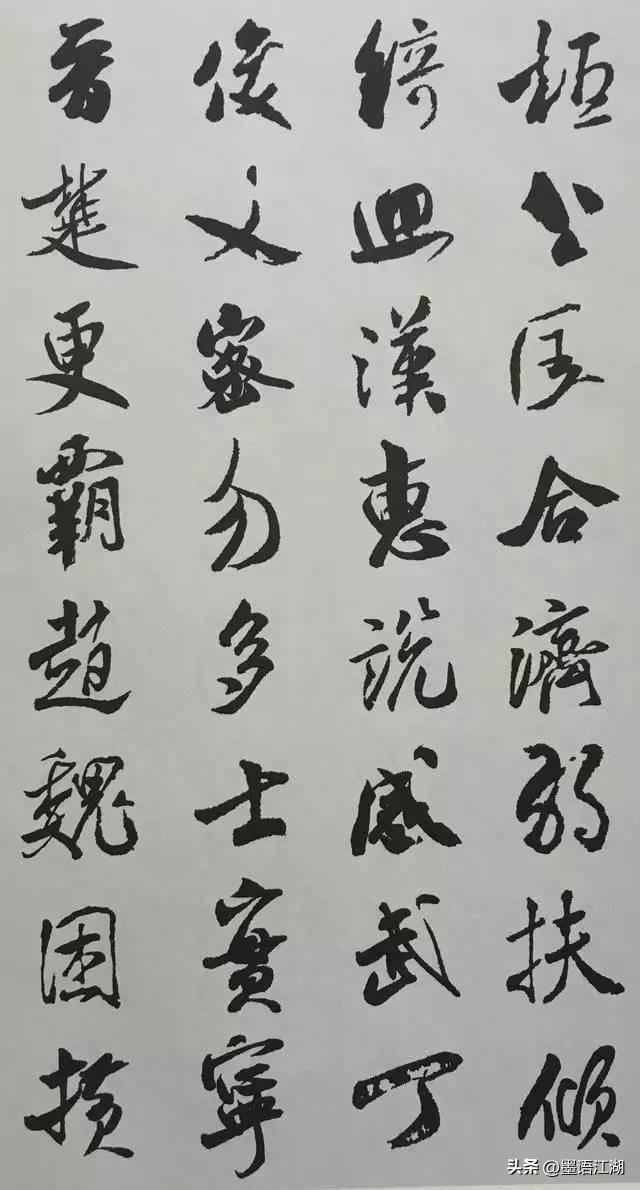 桓公匡合濟弱扶傾
綺迴漢惠說感武丁
俊乂密勿多士寔寧
晉楚更霸趙魏困橫
头条 @墨语江湖